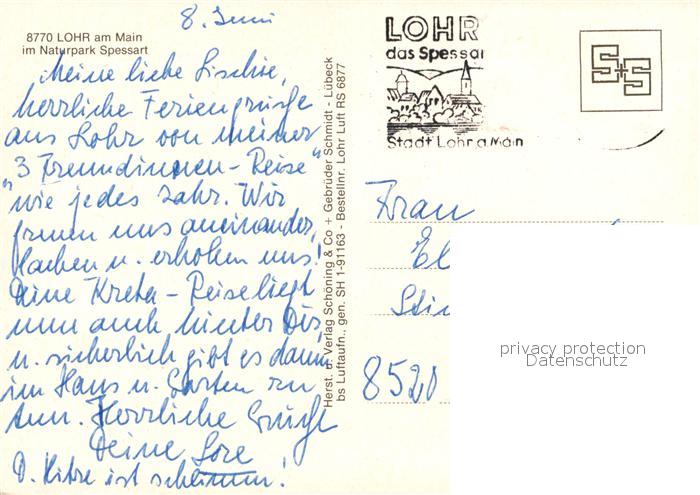 8. Juni
8770 LOHR am Main
im Naturpark Spessart
Meine liebe
herrliche Feriengrüße
aus Lohr von meiner
"3 Freundinnen-Reise"
wie jedes Jahr. Wir
freuen uns aneinander,
lachen u. erholen uns!
Deine Kreta-Reise liegt
nun auch hinter Dir,
u. sicherlich gibt es dann
im Haus u. Garten zu
tun. Herrliche Grüße
Deine Lore
D. Hitze ist schlimm!
Herst. u. Verlag Schöning & Co + Gebrüder Schmidt - Lübeck
bs Luftaufn., gen. SH 1-91163 - Bestellnr. Lohr Luft RS 6877
LOHR
das Spessar
Stadt Lohr a Main
S+S
Frau
El
8520
privacy protection
Datenschutz